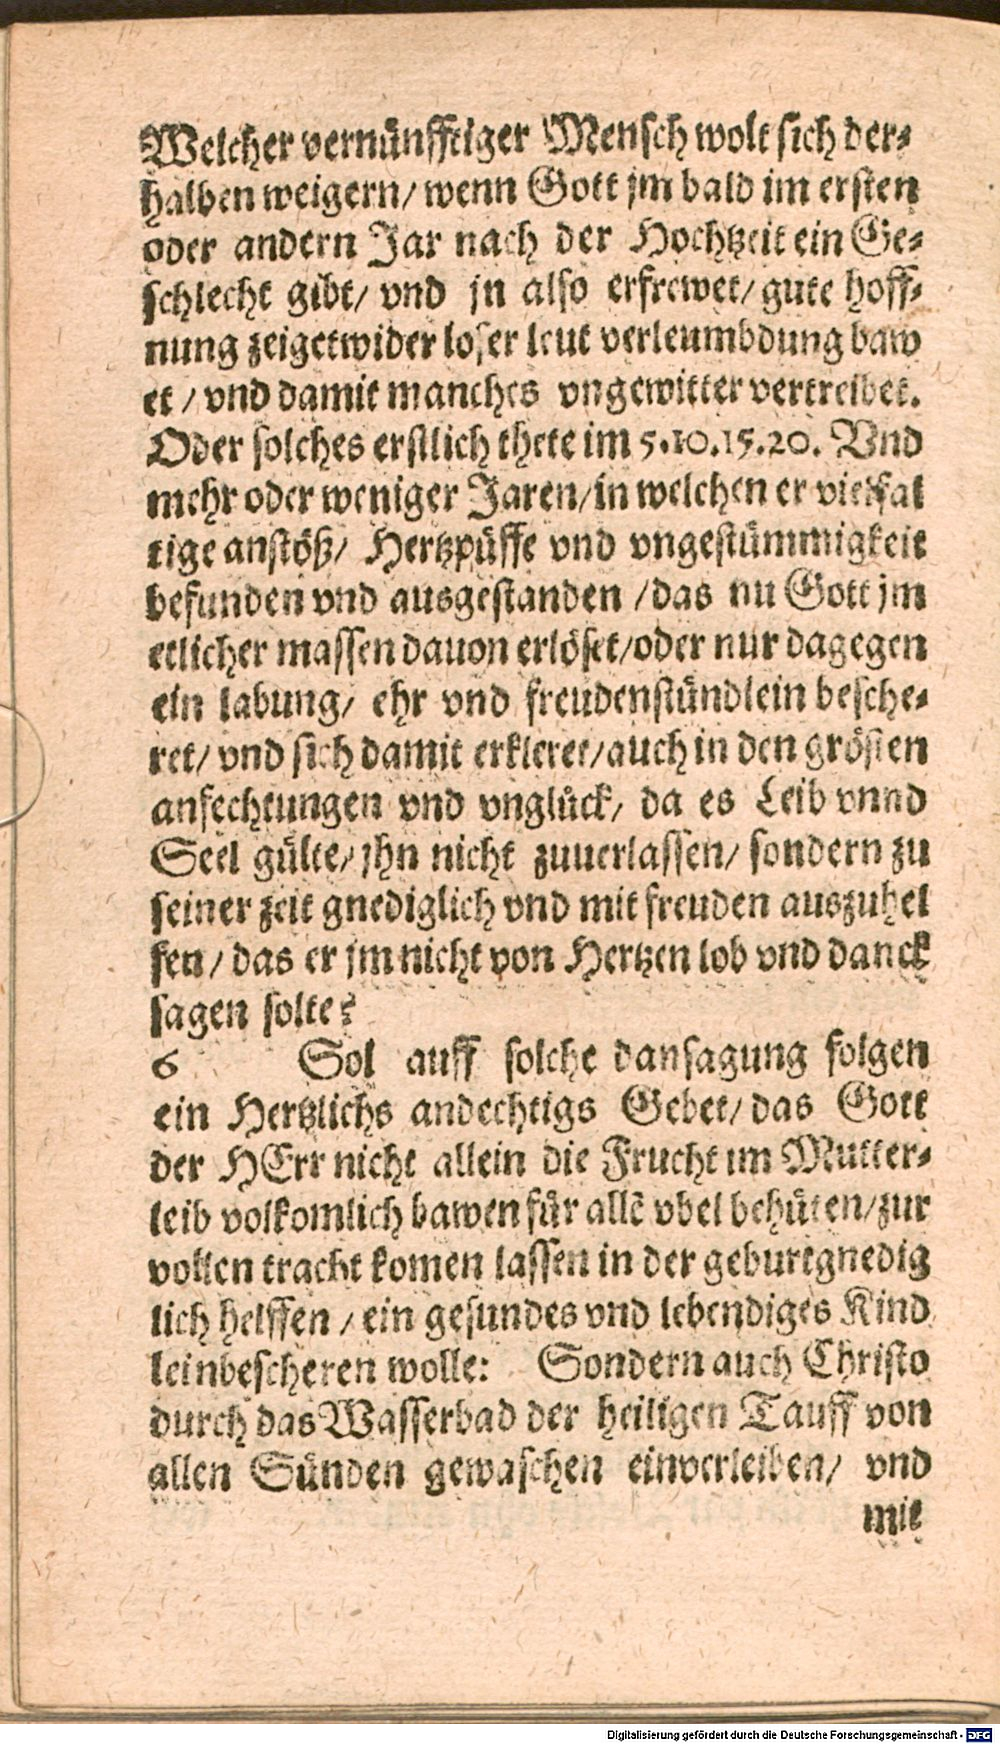 Welcher vernünfftiger Mensch wolt sich der-
halben weigern/ wenn Gott jm bald im ersten
oder andern Jar nach der Hochtzeit ein Ge-
schlecht gibt/ vnd jn also erfrewet/ gute hoff-
nung zeiget wider loser leut verleumbdung baw
et / vnd damit manches vngewitter vertreibet.
Oder solches erstlich thete im 5.10.15.20. Vnd
mehr oder weniger Jaren/ in welchen er vielfal
tige anstöß/ Hertzpüffe vnd vngestümmigkeit
befunden vnd ausgestanden / das nu Gott jm
etlicher massen dauon erlöset/oder nur dagegen
ein labung/ ehr vnd freudenstündlein besche-
ret/ vnd sich damit erkleret/auch in den grösten
anfechtungen vnd vnglück/ da es Leib vnnd
Seel gülte/ jhn nicht zuuerlassen/ sondern zu
seiner zeit gnediglich vnd mit freuden auszuhel
fen / das er jm nicht von Hertzen lob vnd danck
sagen solte?
6 Sol auff solche dansagung folgen
ein Hertzlichs andechtigs Gebet/ das Gott
der HErr nicht allein die Frucht im Mutter-
leib volkomlich bawen für allē vbel behüten/zur
vollen tracht komen lassen in der geburt gnedig
lich helffen / ein gesundes vnd lebendiges Kind
lein bescheren wolle: Sondern auch Christo
durch das Wasserbad der heiligen Tauff von
allen Sünden gewaschen einverleiben/ vnd
mit
Digitalisierung gefördert durch die Deutsche Forschungsgemeinschaft - DFG